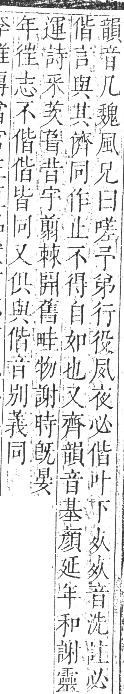 韻音几魏風兄曰嗟予弟行役夙夜必偕叶下死死音洗註必
偕言與其儕同作止不得自如也又齊韻音基顏延年和謝靈
運詩采茨葺昔宇翦棘開舊畦物謝時旣晏
年徃志不偕偕皆同又俱與偕音別義同